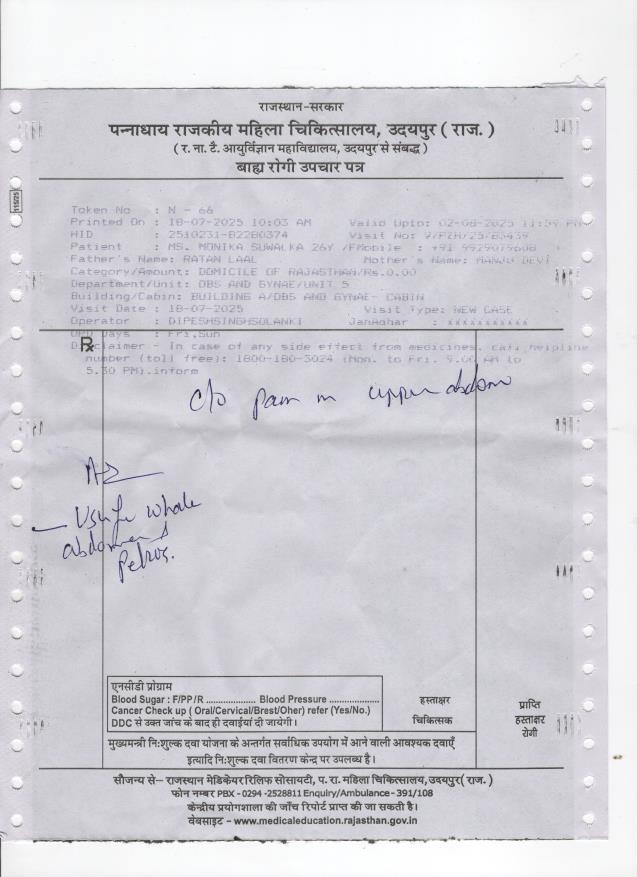 राजस्थान-सरकार
पन्नाधाय राजकीय महिला चिकित्सालय, उदयपुर ( राज. )
( र. ना. टै. आयुर्विज्ञान महाविद्यालय, उदयपुर से संबद्ध )
बाह्य रोगी उपचार पत्र
115/25
Token No : N - 66
Printed On : 18-07-2025 10:03 AM Valid Upto: 02-08-2025 11:59 PM
HID : 2510231-B2280374 Visit No:
Patient : MS. MONIKA SUWALKA 26Y /F Mobile : +91 9929079608
Father's Name: RATAN LAAL Mother's Name: MANJU DEVI
Category/Amount: DOMICILE OF RAJASTHAN/Rs.0.00
Department/Unit: OBS AND GYNAE/UNIT 5
Building/Cabin: BUILDING A/OBS AND GYNAE- CABIN
Visit Date : 18-07-2025 Visit Type: NEW CASE
Operator : DIPESHSINGHSOLANKI JanAahar : xxxxxxxxxxx
OPD Days : Fri,Sun
Rx
Disclaimer - In case of any side effect from medicines, call helpline
number (toll free): 1800-180-3024 (Mon. to Fri. 9.00 AM to
5.30 PM).inform
c/o pain in upper abdom
whole
abdomen &
Pelvis.
एनसीडी प्रोग्राम
Blood Sugar : F/PP /R .................. Blood Pressure ..................
Cancer Check up ( Oral/Cervical/Brest/Oher) refer (Yes/No.)
DDC से उक्त जांच के बाद ही दवाईयां दी जायेगी।
हस्ताक्षर
चिकित्सक
प्राप्ति
हस्ताक्षर
रोगी
मुख्यमन्त्री निःशुल्क दवा योजना के अन्तर्गत सर्वाधिक उपयोग में आने वाली आवश्यक दवाएँ
इत्यादि निःशुल्क दवा वितरण केन्द्र पर उपलब्ध है।
सौजन्य से– राजस्थान मेडिकेयर रिलिफ सोसायटी, प. रा. महिला चिकित्सालय, उदयपुर( राज. )
फोन नम्बर PBX - 0294 -2528811 Enquiry/Ambulance - 391/108
केन्द्रीय प्रयोगशाला की जाँच रिपोर्ट प्राप्त की जा सकती है।
वेबसाइट – www.medicaleducation.rajasthan.gov.in